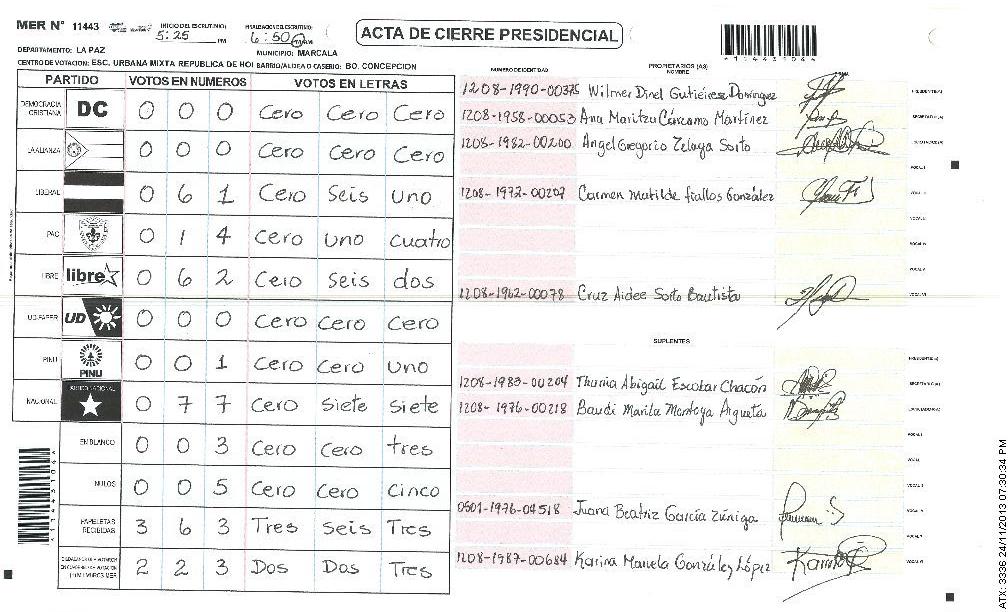 MER N° 11443
INICIO DEL ESCRUTINIO:
5:25 PM
FINALIZACION ESCRUTINIO:
6:50
ACTA DE CIERRE PRESIDENCIAL
DEPARTAMENTO: LA PAZ
MUNICIPIO: MARCALA
CENTRO DE VOTACION: ESC. URBANA MIXTA REPUBLICA DE HOI BARRIO/ALDEA O CASERIO: BO. CONCEPCION
PARTIDO VOTOS EN NUMEROS VOTOS EN LETRAS
DEMOCRACIA CRISTIANA DC 0 0 0 Cero Cero Cero
LA ALIANZA 0 0 0 Cero Cero Cero
LIBERAL 0 6 1 Cero Seis Uno
PAC 0 1 4 Cero Uno Cuatro
LIBRE libre 0 6 2 Cero Seis dos
UD-FAPER UD 0 0 0 Cero Cero Cero
PINU PINU 0 0 1 Cero Cero Uno
NACIONAL PARTIDO NACIONAL 0 7 7 Cero Siete Siete
EN BLANCO 0 0 3 Cero Cero tres
NULOS 0 0 5 Cero Cero Cinco
PAPELETAS RECIBIDAS 3 6 3 Tres Seis Tres
2 2 3 Dos Dos Tres
NUMERO DE IDENTIDAD
PROPIETARIOS (AS)
NOMBRE
1208-1990-00375 Wilmer Dinel Gutiérrez Dominguez PRESIDENTE(A)
1208-1958-00053 Ana Maritza Cárcamo Martínez SECRETARIO(A)
1208-1982-00200 Angel Gregorio Zelaya Sorto ESCRUTADOR(A)
VOCAL I
1208-1972-00207 Carmen Matilde fiallos González VOCAL II
VOCAL III
VOCAL IV
VOCAL V
1208-1962-00078 Cruz Aidee Sorto Bautista VOCAL VI
SUPLENTES
PRESIDENTE(A)
1208-1983-00204 Thurnia Abigail Escobar Chacón SECRETARIO(A)
1208-1976-00218 Baudi Marila Montoya Argueta ESCRUTADOR(A)
VOCAL I
VOCAL II
VOCAL III
0801-1976-04518 Juana Beatriz García Zúniga VOCAL IV
VOCAL V
1208-1987-00684 Karina Mariela González López VOCAL VI
ATX: 3336 24/11/2013 07:30:34 PM